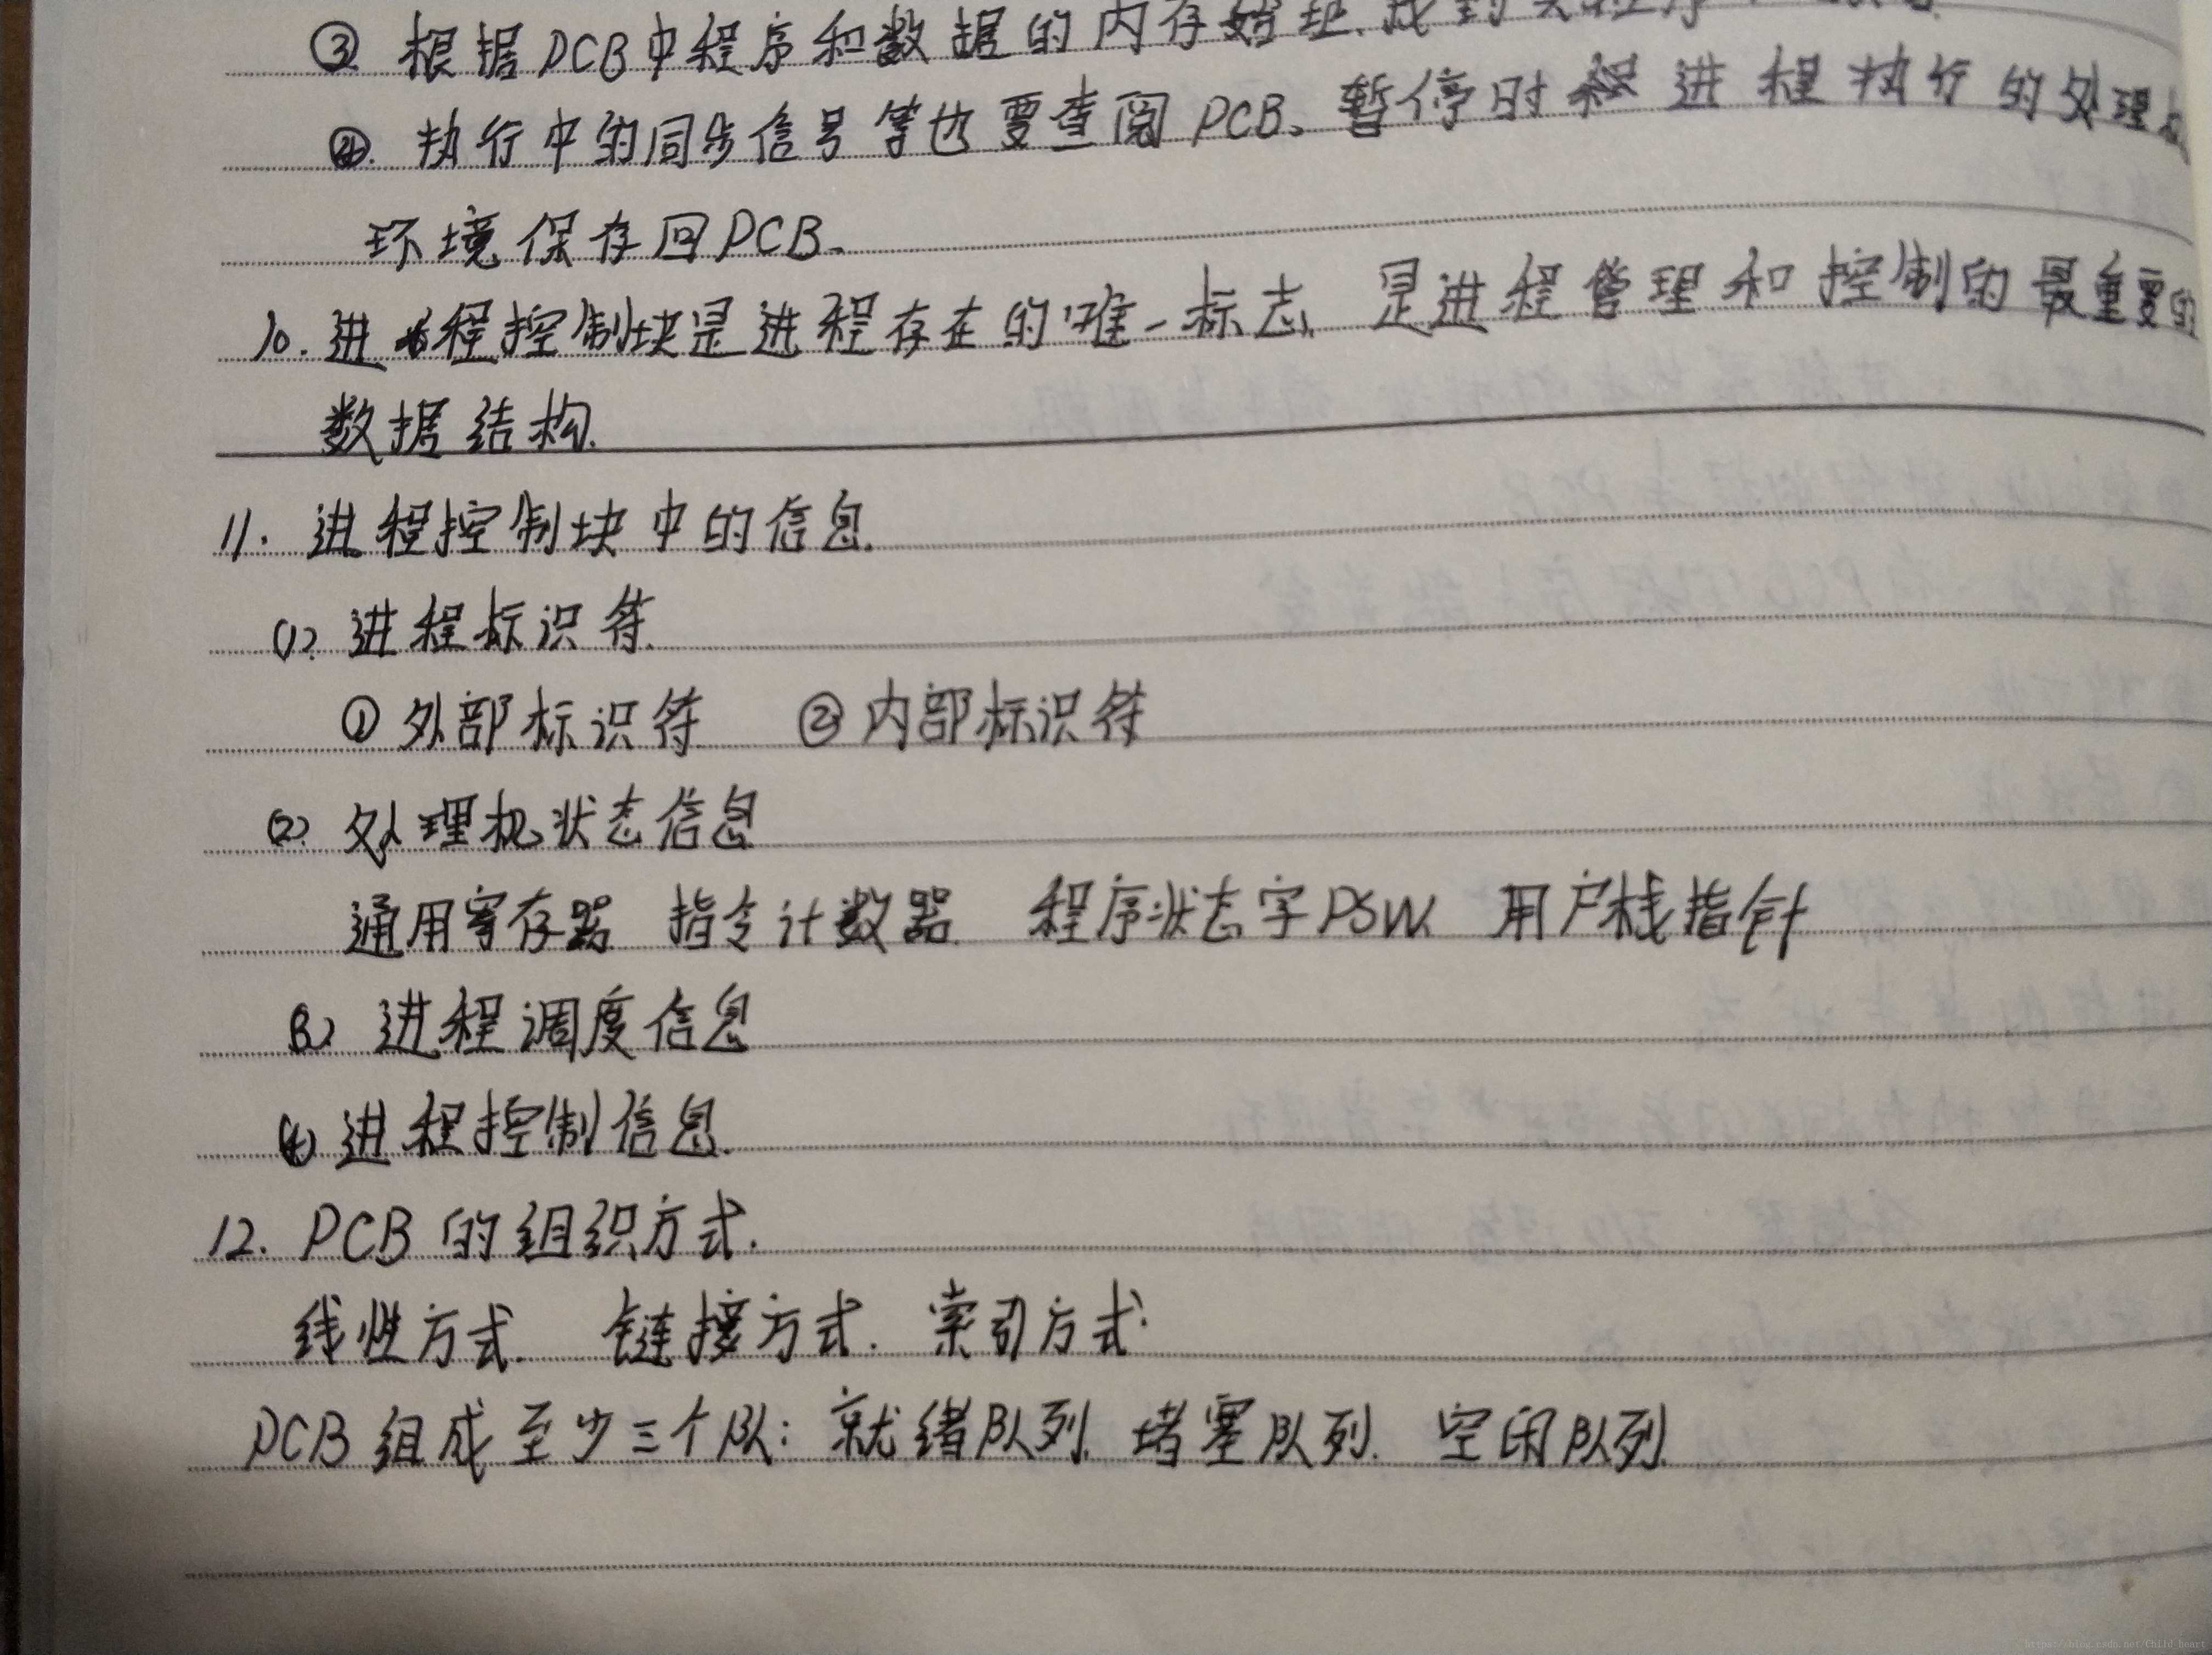 ③ 根据PCB中程序和数据的内存始址.找到其程序
④. 执行中的同步信号等也要查阅PCB、暂停时 进程执行的处理机
环境保存回PCB.
10. 进程控制块是进程存在的唯一标志. 是进程管理和控制的最重要的
数据结构.
11. 进程控制块中的信息.
(1) 进程标识符.
① 外部标识符 ② 内部标识符
(2) 处理机状态信息
通用寄存器 指令计数器 程序状态字PSW. 用户栈指针
(3) 进程调度信息
(4) 进程控制信息.
12. PCB的组织方式.
线性方式. 链接方式. 索引方式.
PCB组成至少三个队: 就绪队列. 堵塞队列. 空闲队列.
https://blog.csdn.net/Child_heart